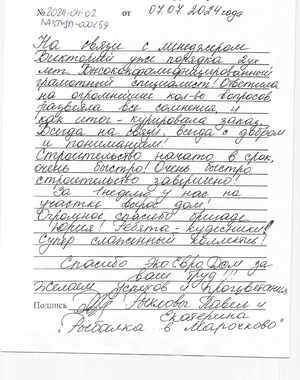 № 2024-04-02 от 07.07.2024 года
На связи с менеджером
Викторией уже порядка 2ух
лет. Высококвалифицированный
грамотный специалист! Ответила
на огромнейшее кол-во вопросов
развеяла все сомнения и
как итог - курировала заказ.
Всегда на связи, всегда с добром
и пониманием!
Строительство начато в срок,
очень быстро! Очень быстро
строительство завершено!
За неделю у нас на
участке вырос дом!
Огромное спасибо бригаде
Юрия! Ребята - кудесники!
Супер слаженный коллектив!
Спасибо ЭкоЕвроДом за
ваш труд!!!
Желаем успехов и процветания
Подпись Павел и
Екатерина
"Рыбалка в Марочково"